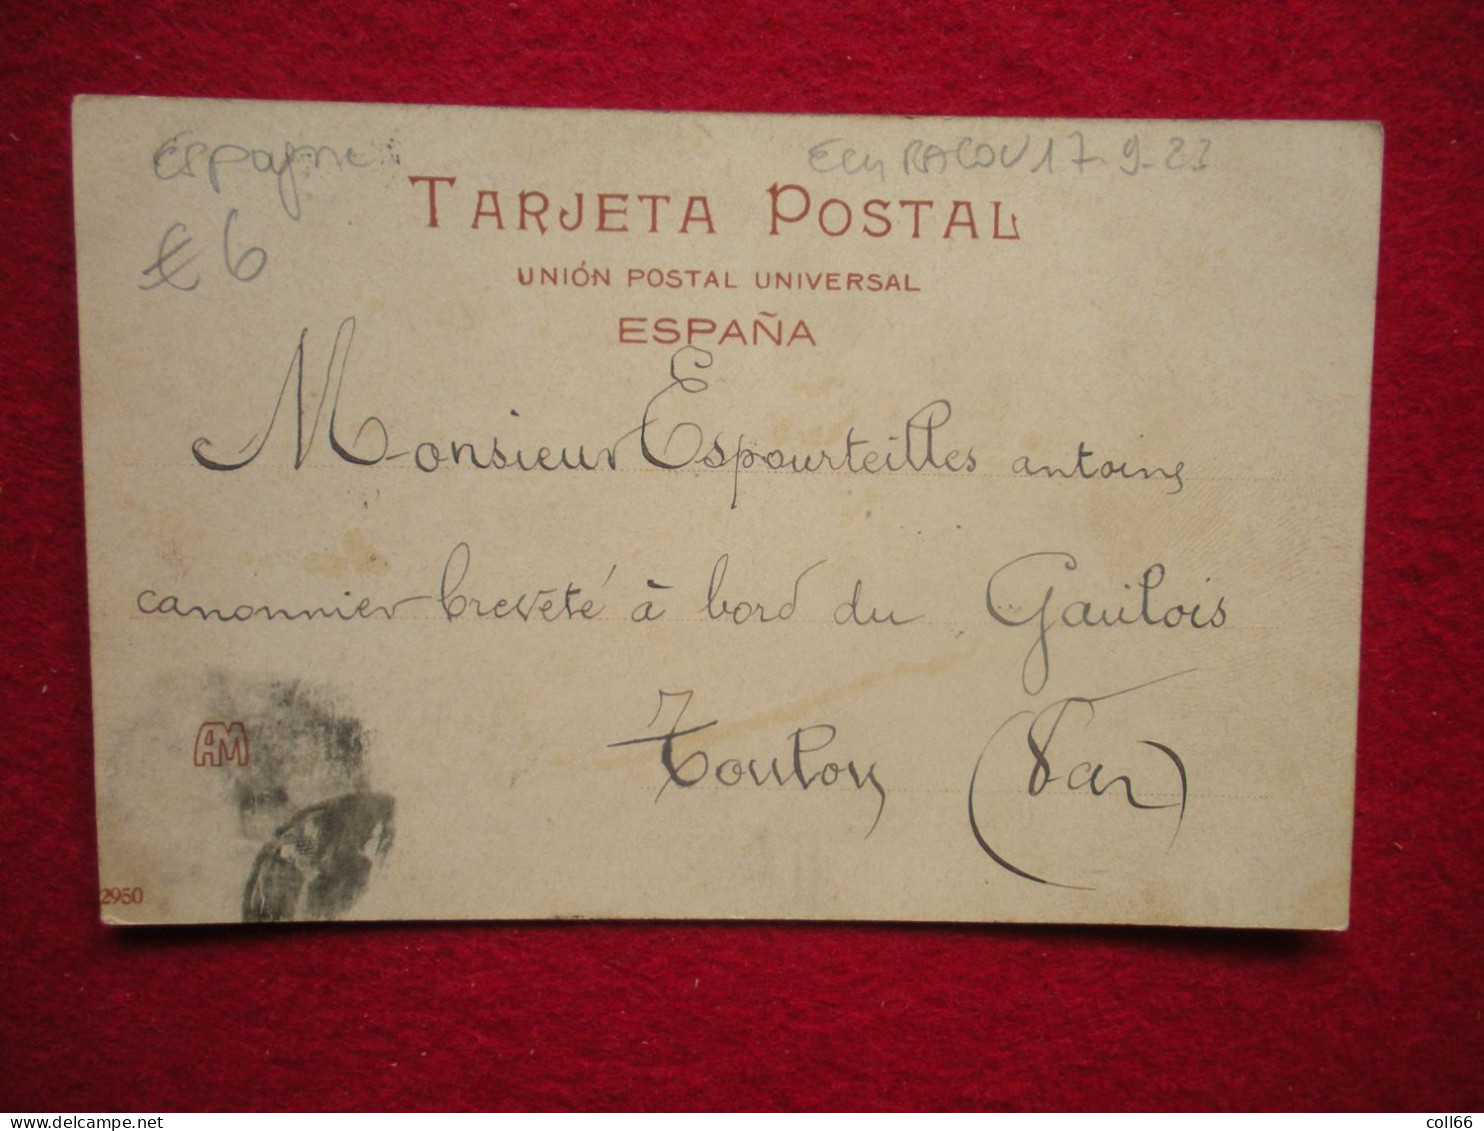 Espagne
€6
17-9-23
TARJETA POSTAL
UNIÓN POSTAL UNIVERSAL
ESPAÑA
Monsieur Espourteilles antoine
canonnier breveté à bord du Gaulois
Toulon (Var)
AM
2950
coll66